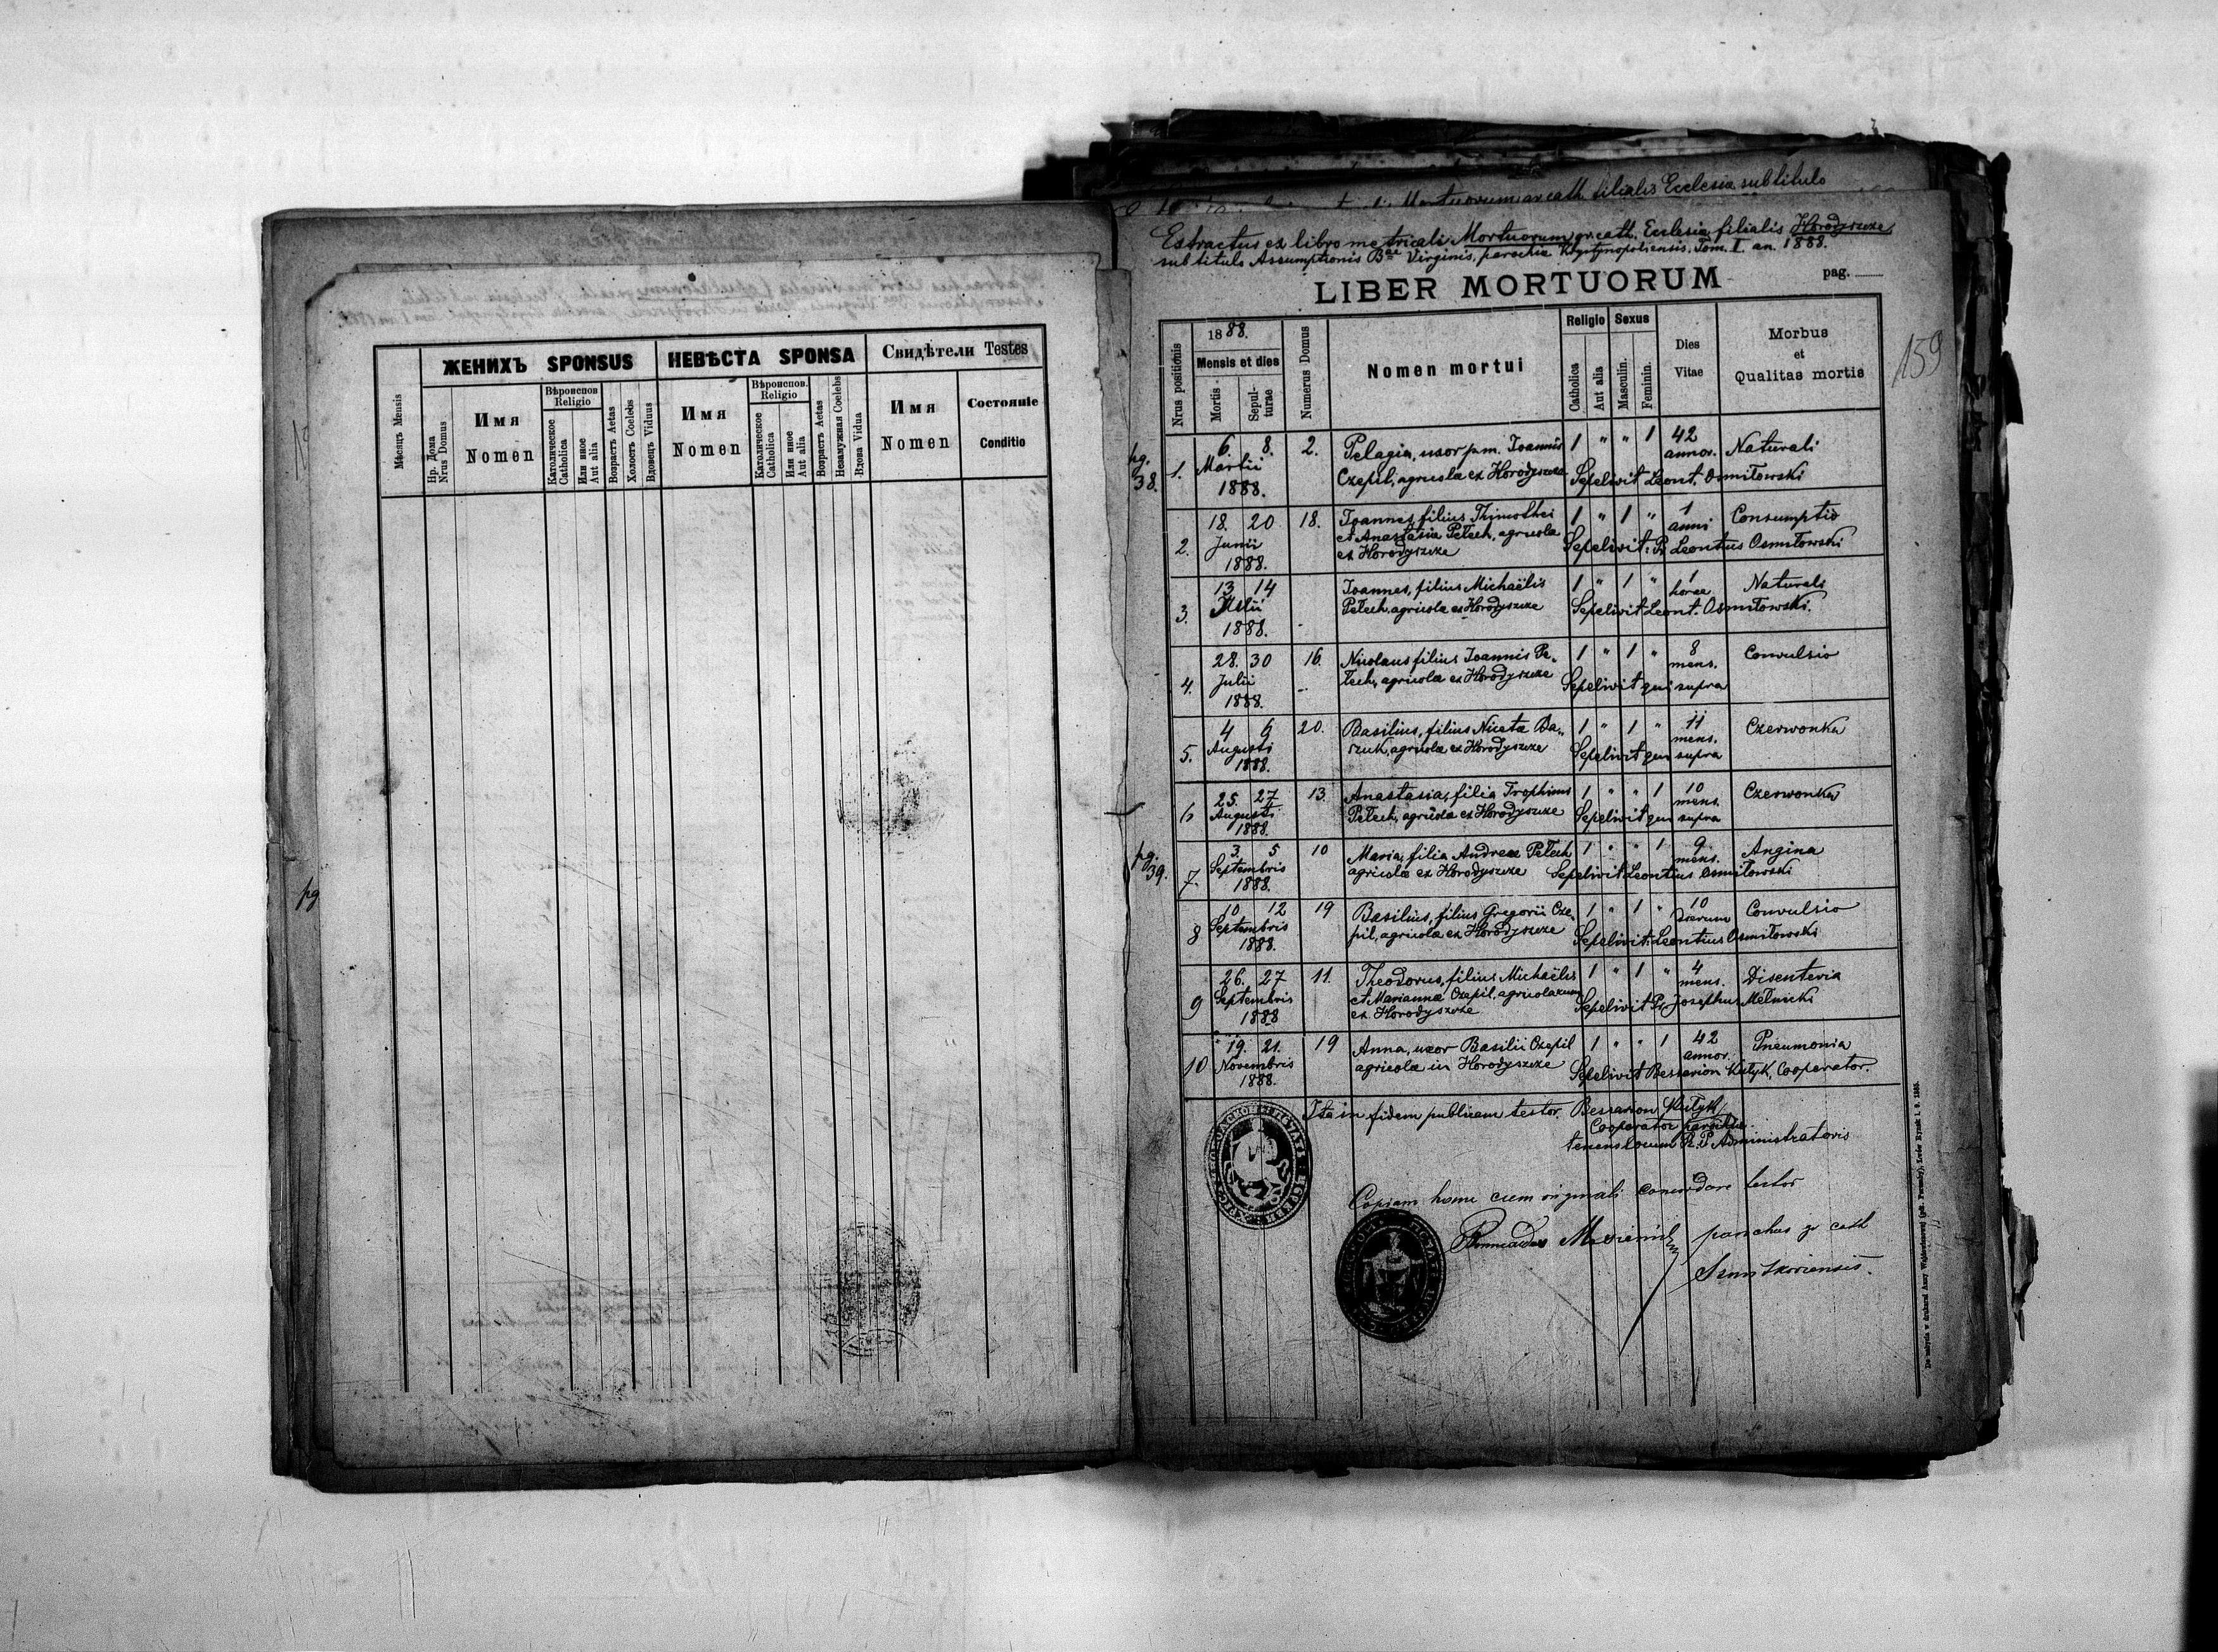 ЖЕНИХЪ SPONSUS
НЕВѢСТА SPONSA
Свидѣтели Testes
Мѣсяцъ Mensis
Нр. Дома
Nrus Domus
Имя
Nomen
Вѣроиспов
Religio
Католическое
Catholica
Или иное
Aut alia
Возрастъ Aetas
Холостъ Coelebs
Вдовецъ Viduus
Имя
Nomen
Вѣроиспов.
Religio
Католическое
Catholica
Или иное
Aut alia
Возрастъ Aetas
Незамужная Coelebs
Вдова Vidua
Имя
Nomen
Состояніе
Conditio
pg
Mortuorum gr cath. filialis Ecclesiæ sub titulo
Extractus ex libro metricali Mortuorum gr. cath. Ecclesiæ filialis Horodyszcze
sub titulo Assumptionis Bae Virginis, parochiæ Krystynopoliensis. Tom. I. an. 1888.
LIBER MORTUORUM
pag.
159
Nrus positionis
1888.
Mensis et dies
Mortis
Sepul-
turae
Numerus Domus
Nomen mortui
Religio
Catholica
Aut alia
Sexus
Masculin.
Feminin.
Dies
Vitae
Morbus
et
Qualitas mortis
pg. 38.
1. 6. 8. Martii 1888. 2. Pelagia, uxor p.m. Ioannis 1 " " 1 42 annor. Naturali
Czepil, agricolæ ex Horodyszcze Sepelivit Leont. Osmiłowski
2. 18. 20 Junii 1888. 18. Ioannes, filius Thimothei 1 " 1 " 1 anni Consumptio
et Anastasiæ Pełech, agricolæ
ex Horodyszcze Sepelivit: P. Leontius Osmiłowski
3. 13 14 1888. Ioannes, filius Michaëlis 1 " 1 " 1 horæ Naturali
Pełech, agricolæ ex Horodyszcze Sepelivit Leont. Osmiłowski.
4. 28. 30 Julii 1888. 16. Nicolaus filius Ioannis Pe- 1 " 1 " 8 mens. Convulsio
łech, agricolæ ex Horodyszcze Sepelivit qui supra
5. 4 6 Augusti 1888. 20. Basilius, filius Nicetæ Da- 1 " 1 " 11 mens. Czerwonka
szuk, agricolæ ex Horodyszcze Sepelivit qui supra
6 25. 27 Augusti 1888. 13. Anastasia, filia Trophimi 1 " " 1 10 mens. Czerwonka
Pełech, agricolæ ex Horodyszcze Sepelivit qui supra
pg. 39.
7. 3. 5 Septembris 1888. 10 Maria, filia Andreæ Pełech 1 " " 1 9 mens. Angina
agricolæ ex Horodyszcze Sepelivit Leontius Osmiłowski
8 10 12 Septembris 1888. 19 Basilius, filius Gregorii Cze- 1 " 1 " 10 dierum Convulsio
pil, agricolæ ex Horodyszcze Sepelivit: Leontius Osmiłowski
9 26. 27 Septembris 1888 11. Theodorus, filius Michaëlis 1 " 1 " 4 mens. Disenteria
et Mariannæ Czepil, agricolarum
ex Horodyszcze Sepelivit P. Josephus Mełnicki
10 19. 21. Novembris 1888. 19 Anna, uxor Basilii Czepil 1 " " 1 42 annor. Pneumonia
agricolæ in Horodyszcze Sepelivit Bessarion Kutyk, Cooperator.
Ita in fidem publicam testor. Bessarion Kutyk
Cooperator parochiæ.
tenens locum R. P. Administratoris
Copiam hanc cum originali concordare testor
parochus gr cath